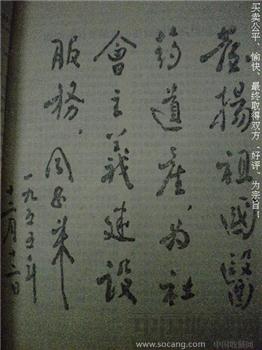 發揚祖國醫
药遺產,为社
會主義建設
服務。周恩来
一九五五年
十二月十二日
买卖公平、愉快、最终取得双方「好评」为宗旨！
www.socang.com
中国收藏网